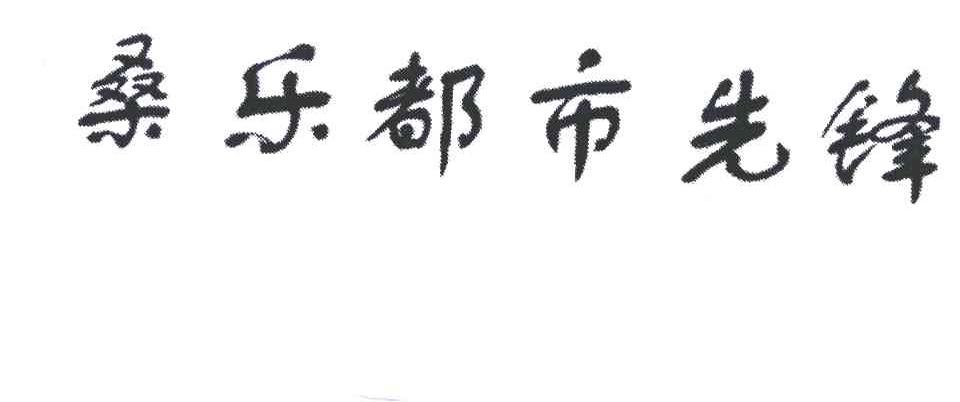 桑乐都市先锋